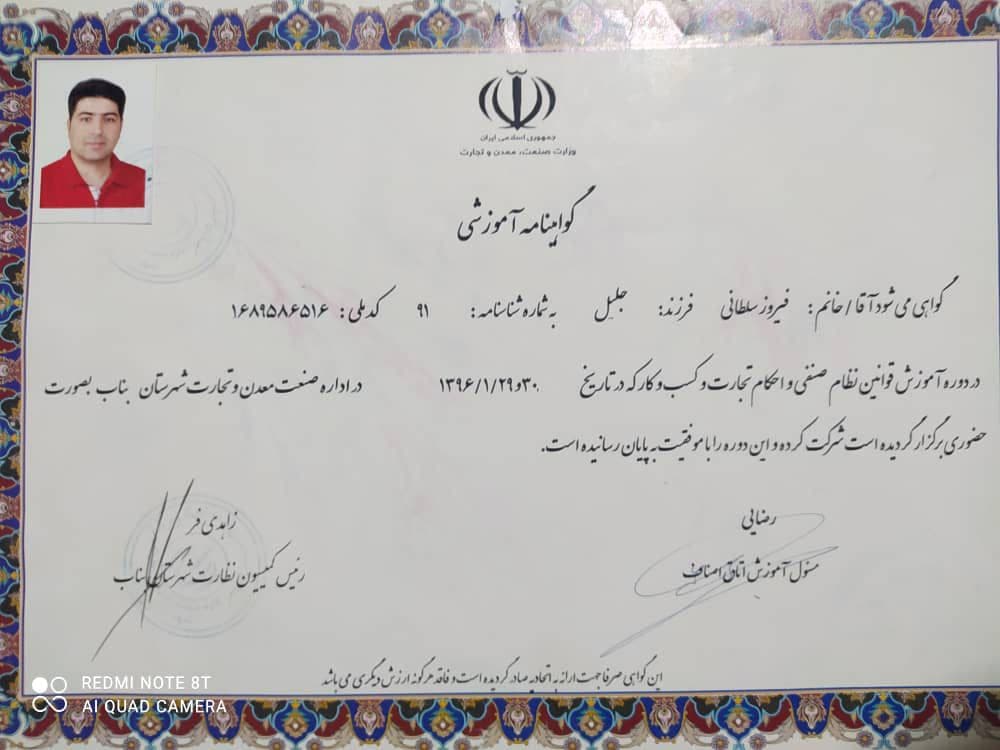 جمهوری اسلامی ایران
وزارت صنعت، معدن و تجارت
گواهینامه آموزشی
گواهی می شود آقا / خانم : فیروز سلطانی فرزند: جلیل به شماره شناسنامه: ۹۱ کد ملی: ۱۶۸۹۵۸۶۵۱۶
در دوره آموزش قوانین نظام صنفی و احکام تجارت و کسب و کار که در تاریخ ۳۰و۱۳۹۶/۱/۲۹ در اداره صنعت معدن و تجارت شهرستان بناب بصورت
حضوری برگزار گردیده است شرکت کرده و این دوره را با موفقیت به پایان رسانیده است.
رضایی
مسئول آموزش اتاق اصناف
زاهدی فر
رئیس کمیسیون نظارت شهرستان بناب
این گواهی صرفا جهت ارائه به اتحادیه صادر گردیده است و فاقد هرگونه ارزش دیگری می باشد
REDMI NOTE 8T
AI QUAD CAMERA